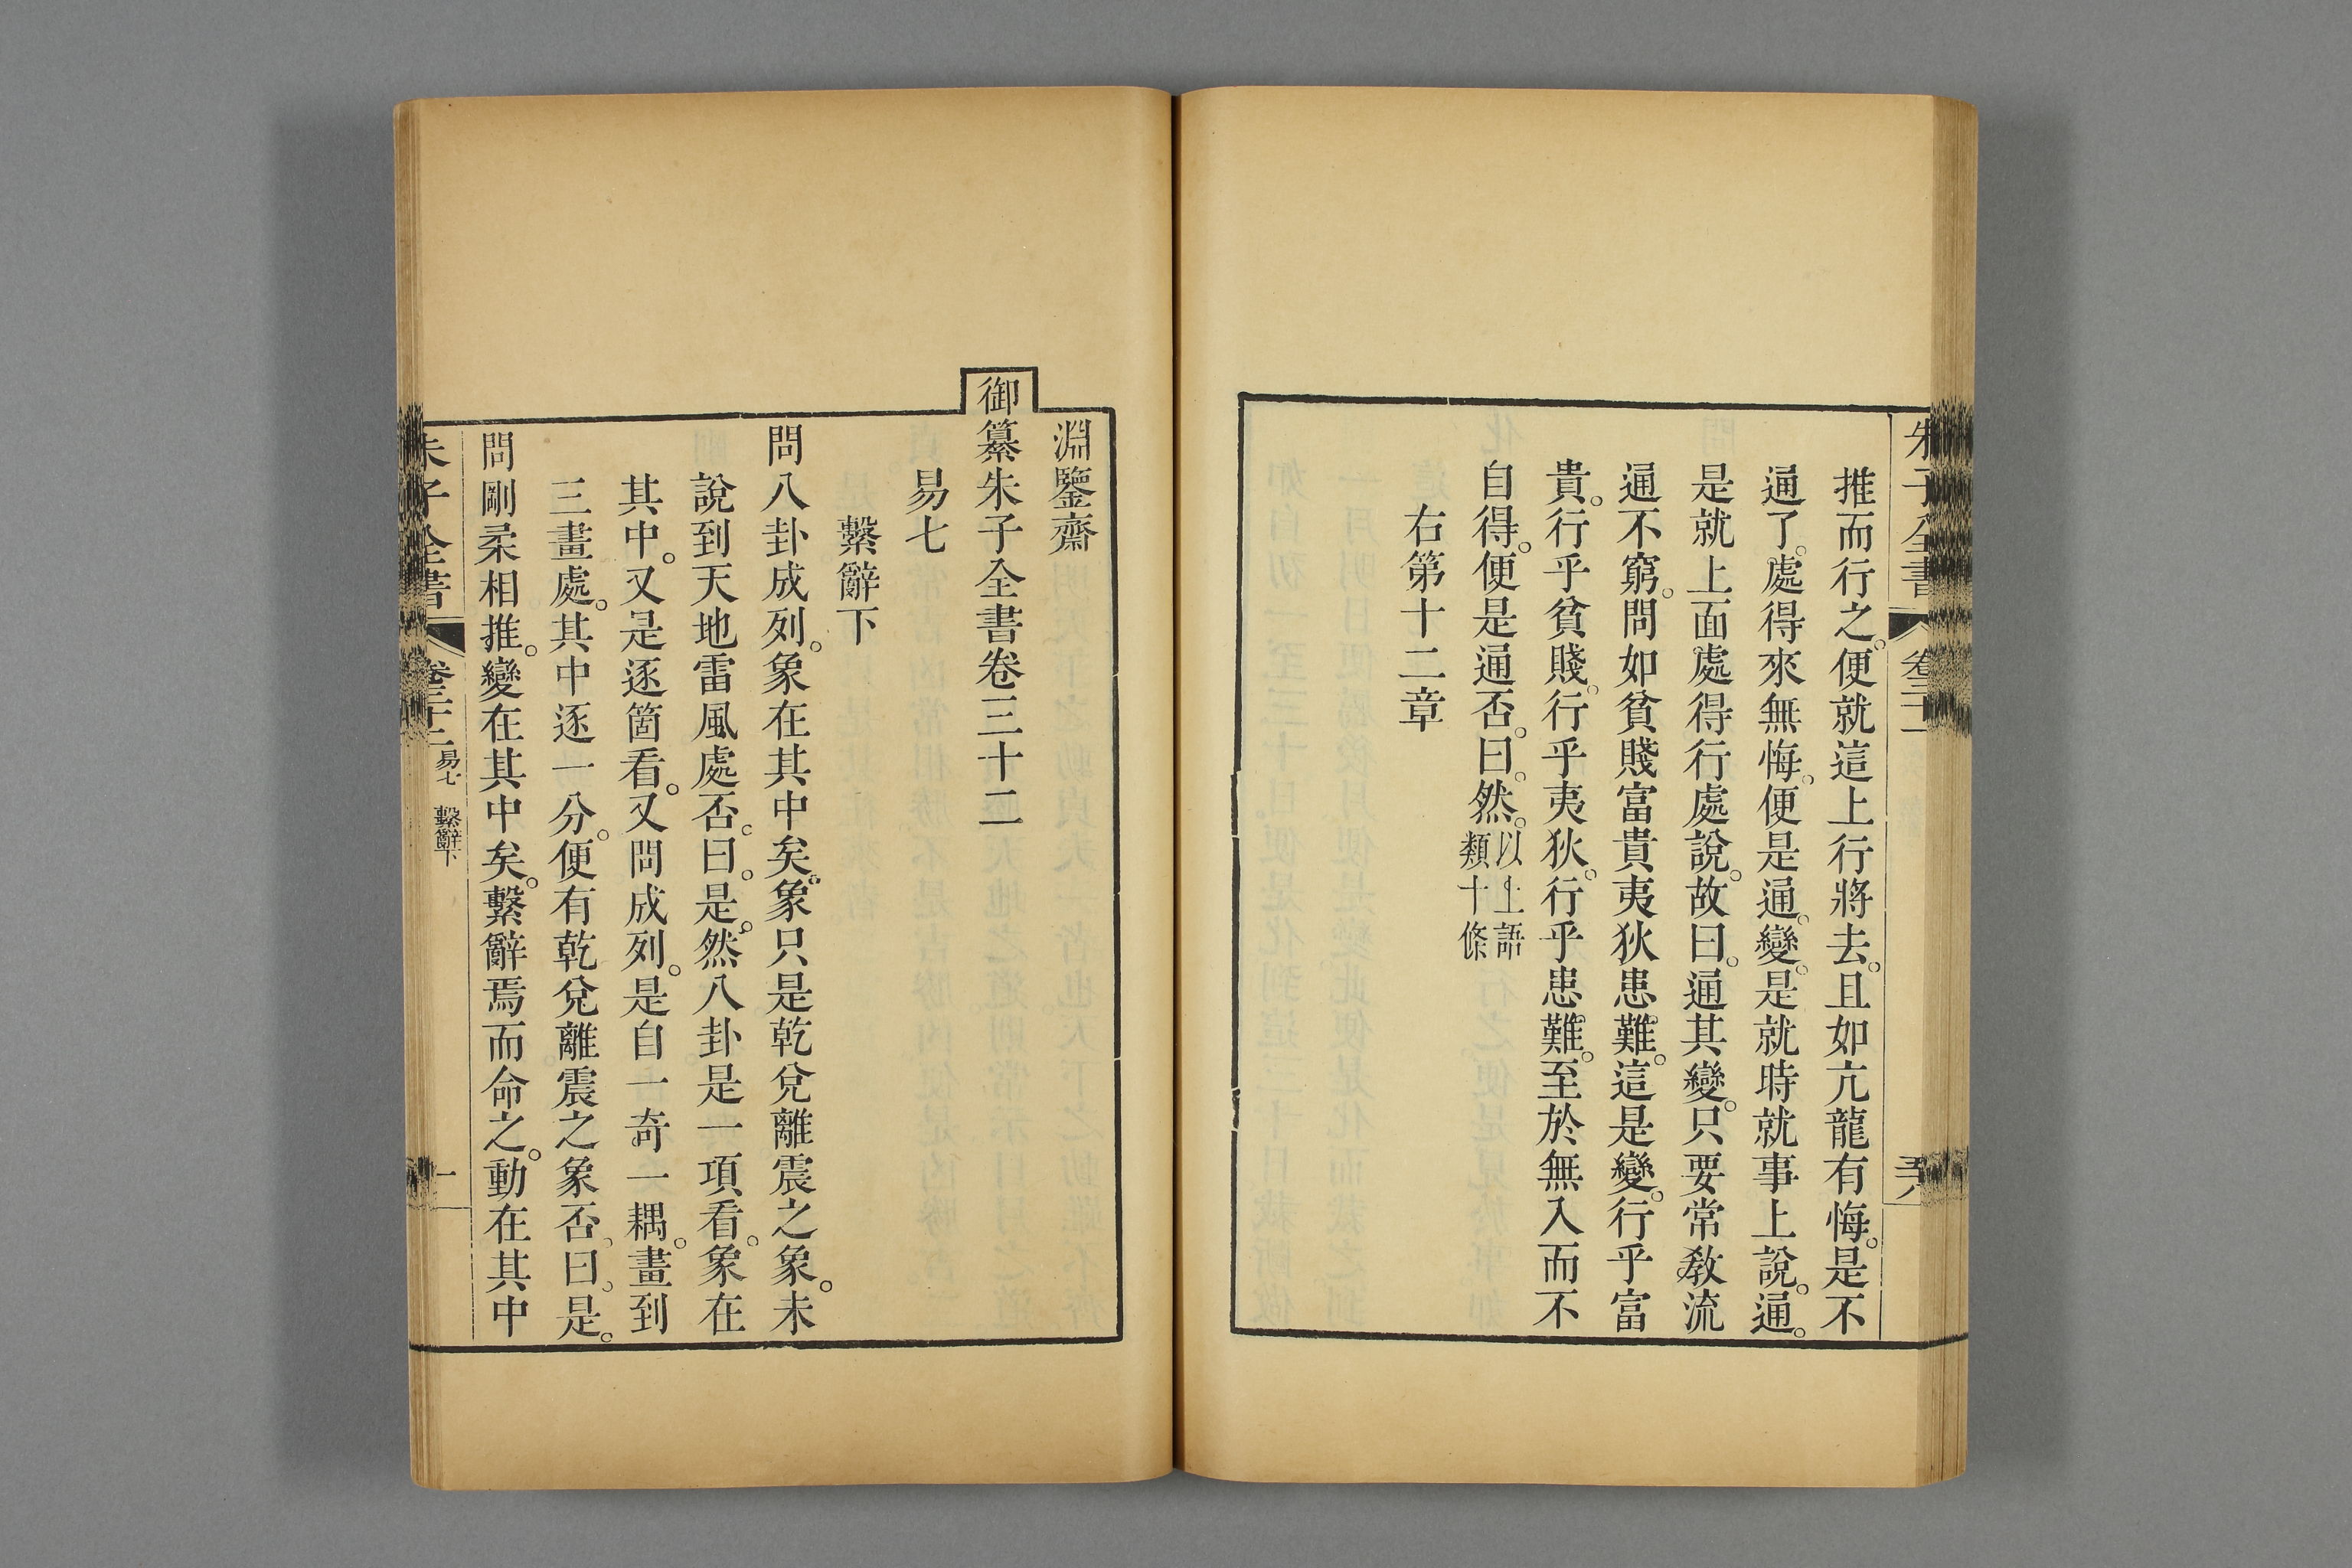 推而行之。便就這上行將去。且如亢龍有悔。是不
通了。處得來無悔。便是通。變。是就時就事上說。通。
是就上面處得行處說。故曰。通其變。只要常敎流
通不窮。問如貧賤富貴夷狄患難。這是變。行乎富
貴。行乎貧賤。行乎夷狄。行乎患難。至於無入而不
自得。便是通否。曰。然。以上語
類十條
右第十二章
淵鑒齋
御纂朱子全書卷三十二
易七
繫辭下
問八卦成列。象在其中矣。象只是乾兌離震之象。未
說到天地雷風處否。曰。是。然八卦是一項看。象在
其中。又是逐箇看。又問成列。是自一奇一耦。畫到
三畫處。其中逐一分。便有乾兌離震之象否。曰。是。
問剛柔相推。變在其中矣。繫辭焉而命之。動在其中
朱子全書
卷三十二
易七
繫辭下
一